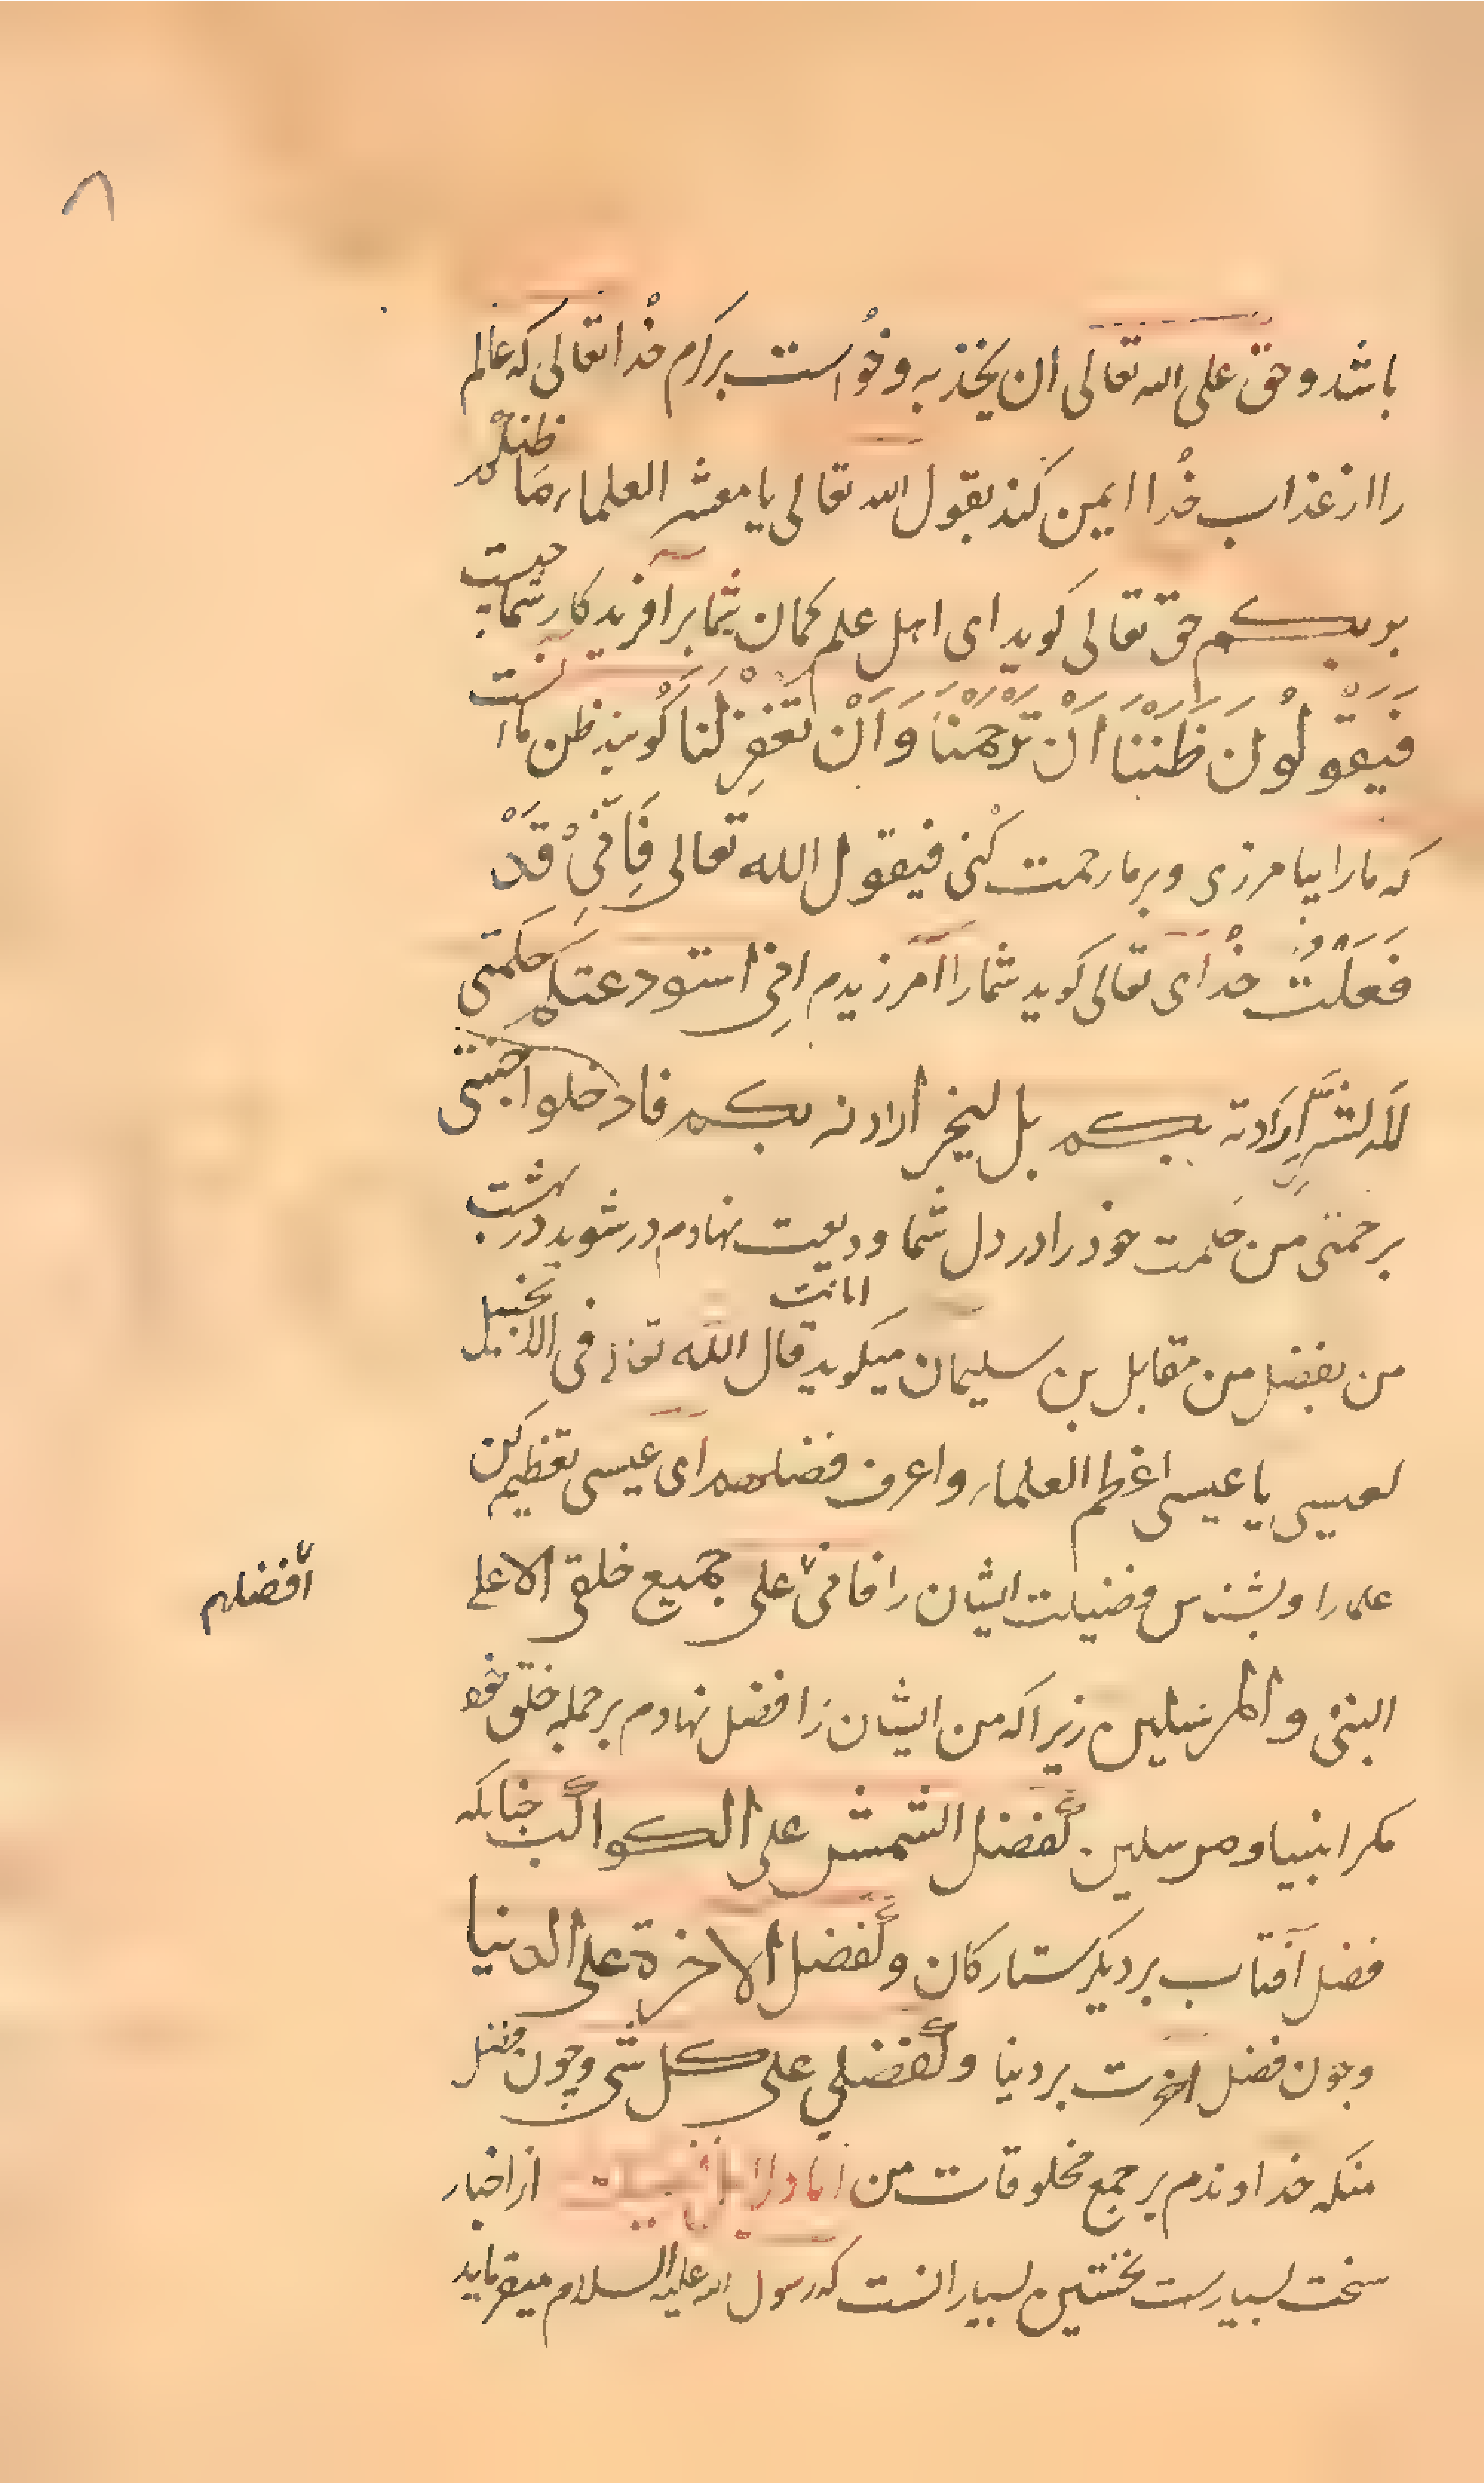 ۸
باشد و حق علی الله تعالی ان یخذ به و خواست بر کرم خدا تعالی که عالم
را از عذاب خدا ایمن کند یقول الله تعالی یا معشر العلماء ما ظنکم
بربکم حق تعالی کوید ای اهل علم کمان شما بر آفریدکار شما چیست
فَیَقُولُوْنَ ظَنَنَّا اَنْ تَرْحَمْنَا وَ اَنْ تَغْفِرْ لَنَا کویند ظن ما آنست
که مارا بیامرزی و بر ما رحمت کنی فیقول الله تعالی فَاِنّیْ قَدْ
فَعَلْتُ خدای تعالی کوید شمارا آمرزیدم انی استودعتکم حکمتی
لا لشر ارادته بکم بل لخیر ارادته بکم فادخلوا جنتی
برحمتی من حکمت خود را در دل شما ودیعت نهادم در شوید در بهشت
امانت
من بفضل من مقابل بن سلیمان میکوید قال الله تعالی فی الانجیل
لعیسی یا عیسی اعظم العلماء و اعرف فضلهم ای عیسی تعظیم کن
علما را و بشناس فضیلت ایشان را فانی علی جمیع خلقی الا علی
افضلهم
النبی و المرسلین زیرا که من ایشان را فضل نهادم بر جمله خلق خود
مکر انبیا و مرسلین کفضل الشمس علی الکواکب چنانکه
فضل آفتاب بر دیکر ستارکان و کفضل الاخرة علی الدنیا
و چون فضل اخرت بر دنیا و کفضلی علی کل شی و چون فضل
منکه خداوندم بر جمع مخلوقات من اما از اخبار
سخت بسیارست نخستین بسیار انست که رسول الله علیه السلام میفرماید